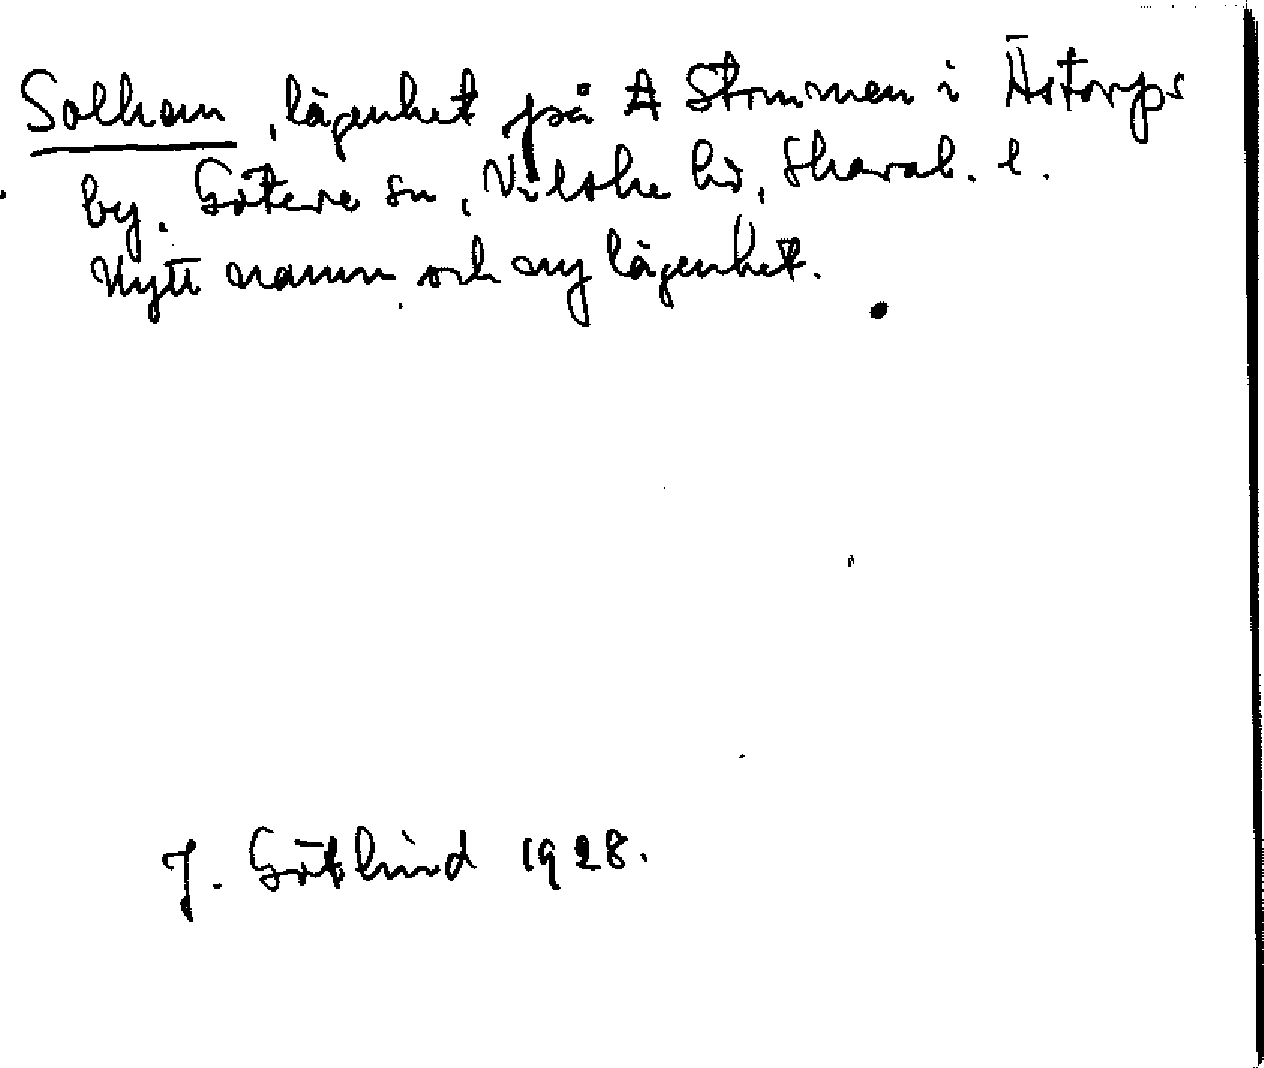 Solhem, lägenhet på A Stommen i Ästorps
by. Göteve sn, Vilske hd, Skarab. l.
Nytt namn och ny lägenhet.
J. Götlind 1928.